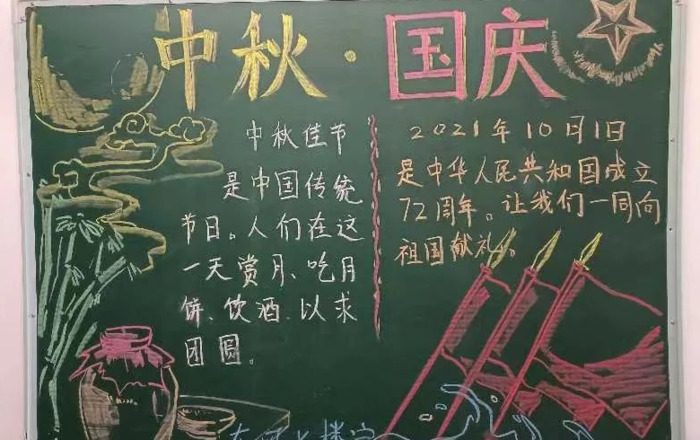 中秋·国庆
中秋佳节
是中国传统
节日。人们在这
一天赏月、吃月
饼、饮酒.以求
团圆。
2021年10月1日
是中华人民共和国成立
72周年。让我们一同向
祖国献礼。